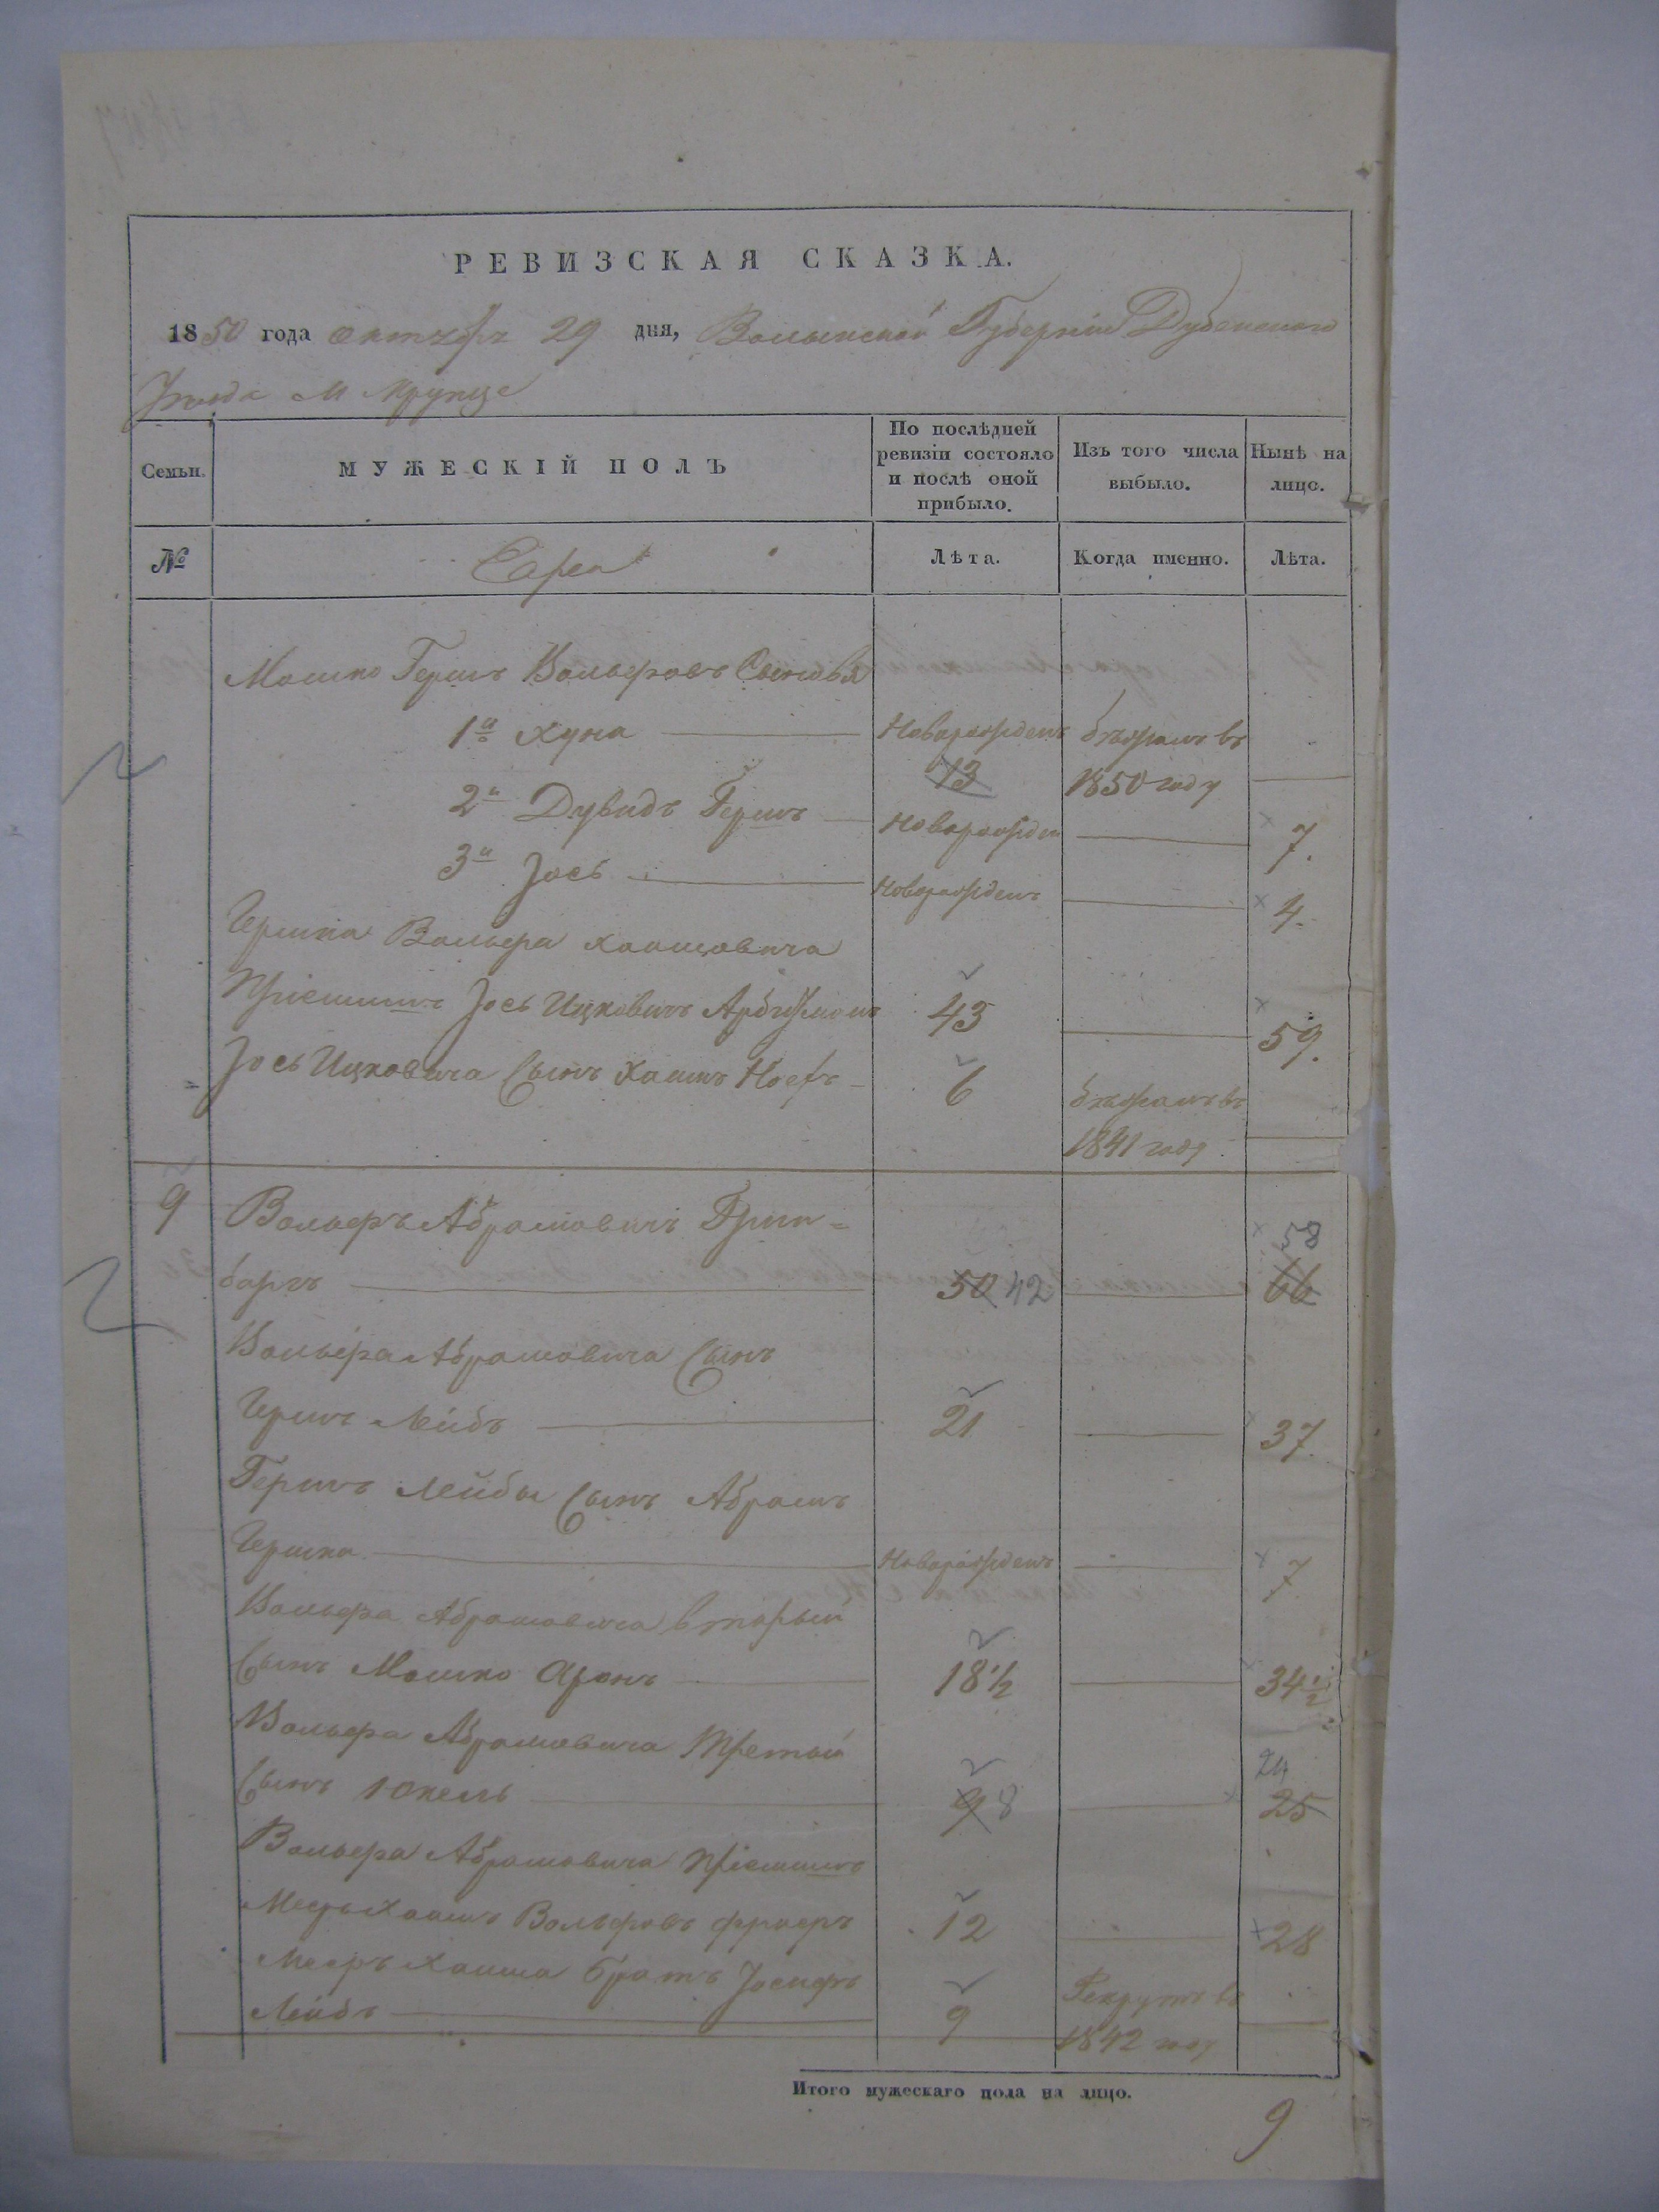 РЕВИЗСКАЯ СКАЗКА.
1850 года октября 29 дня, Волынской Губерніи Дубенского
Уезда М
Семьи.
МУЖЕСКІЙ ПОЛЪ
По послѣдней ревизіи состояло и послѣ оной прибыло.
Изъ того числа выбыло.
Нынѣ на лицо.
№
Лѣта.
Когда именно.
Лѣта.
Мошко Гершъ Вольфовъ Сыновья
1й Хуна Новорожденъ бежалъ въ
13 1850 году
2й Дувидъ Гершъ Новорожден 7.
3й Іось Новорожденъ 4.
Гершка Вольфа Хаимовича
Пріемышъ Іось Ицковичъ 43 59.
Іось Ицковича Сынъ Хаимъ 6 бежалъ въ
1841 году
9 Вольфъ Абрамовичъ Грин= 58
баргъ 50 42 66
Вольфа Абрамовича Сынъ
Гершъ Лейбъ 21 37.
Гершъ Лейбы Сынъ Абрамъ
Гершка Новорожденъ 7
Вольфа Абрамовича вторый
Сынъ Мошко Аронъ 18½ 34½
Вольфа Абрамовича Третый 24
Сынъ Іокель 9 8 25
Вольфа Абрамовича Пріемышъ
Мееръ Хаимъ Вольфовъ 12 28
Мееръ Хаима братъ Іосифъ Рекрутъ въ
Лейбъ 9 1842 году
Итого мужескаго пола на лицо.
9